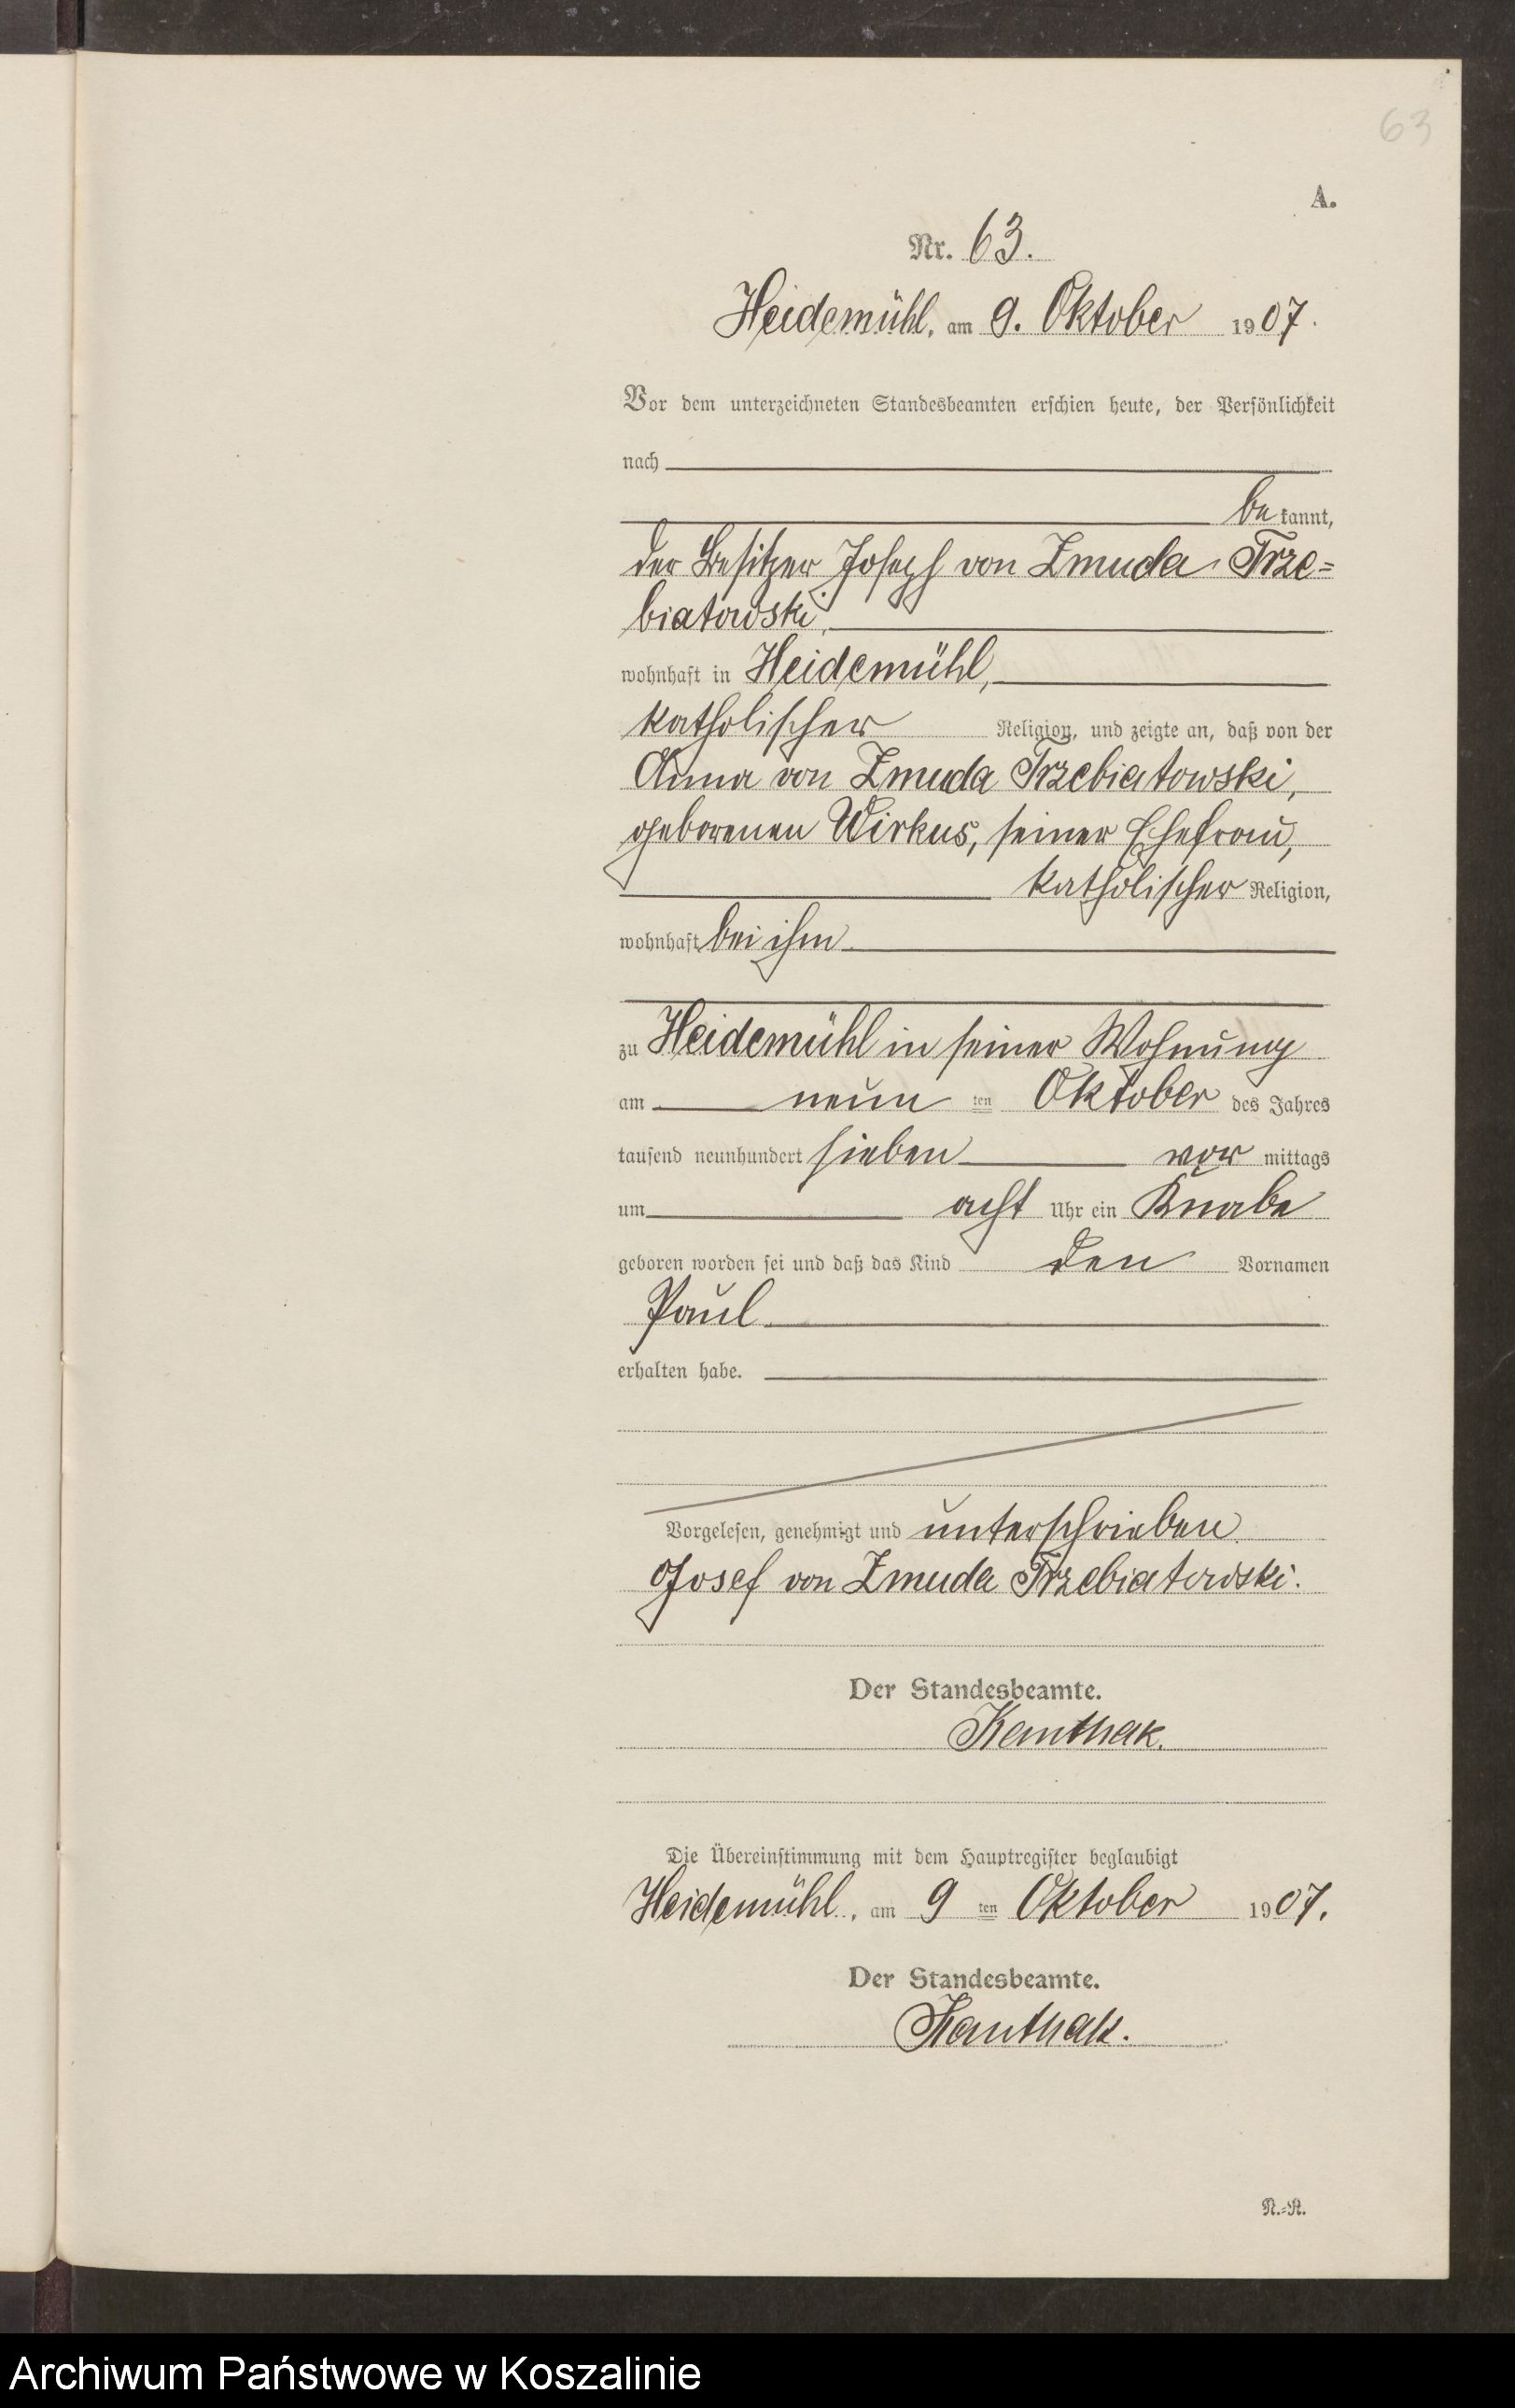 63
A.
Nr. 63.
Heidemühl, am 9. Oktober 1907.
Vor dem unterzeichneten Standesbeamten erschien heute, der Persönlichkeit
nach
bekannt,
der Besitzer Joseph von Zmuda Trze=
biatowski,
wohnhaft in Heidemühl,
katholischer Religion, und zeigte an, daß von der
Anna von Zmuda Trzebiatowski,
geborenen Wirkus, seiner Ehefrau,
katholischer Religion,
wohnhaft bei ihm
zu Heidemühl in seiner Wohnung
am neunten Oktober des Jahres
tausend neunhundert sieben vormittags
um acht Uhr ein Knabe
geboren worden sei und daß das Kind den Vornamen
Paul
erhalten habe.
Vorgelesen, genehmigt und unterschrieben.
Josef von Zmuda Trzebiatowski.
Der Standesbeamte.
Kanthak.
Die Übereinstimmung mit dem Hauptregister beglaubigt
Heidemühl, am 9ten Oktober 1907.
Der Standesbeamte.
Kanthak.
N.=R.
Archiwum Państwowe w Koszalinie